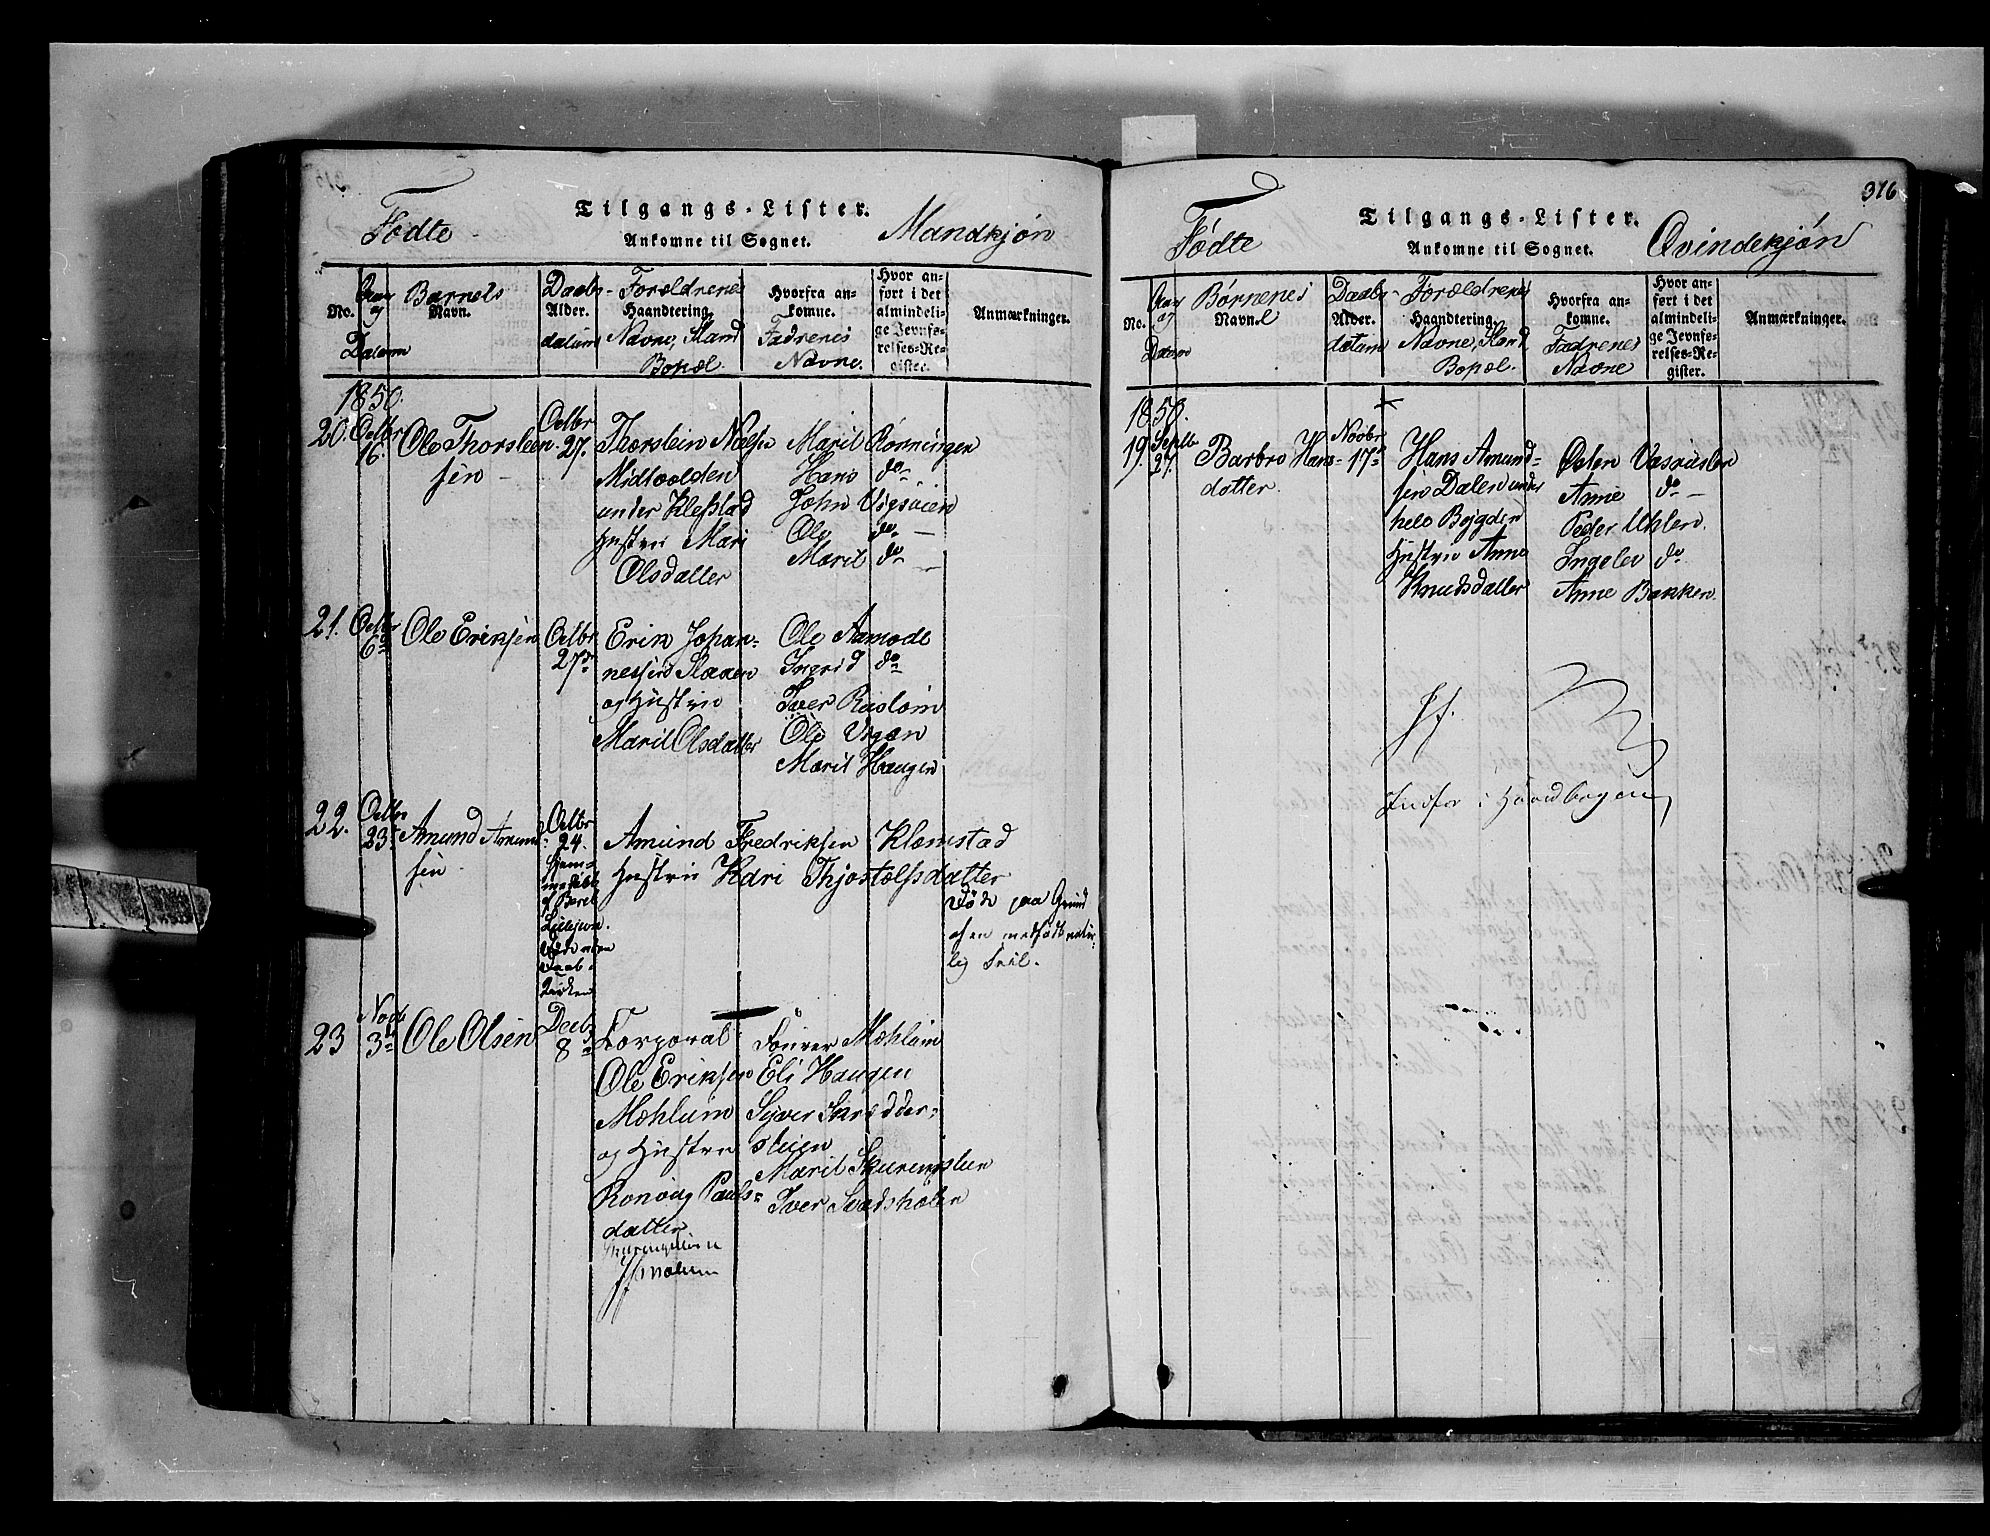 Tilgangs-Lister.
Fødte
Mandkjøn
Ankomne til Sognet.
No.
og
Datum
Barnets
Navn.
Daabs-
Alder.
datum
Forældrenes
Haandtering.
Navne, Stand
Bopæl.
Hvorfra an-
komne.
Fadrenes
Navne.
Hvor an-
ført i det
almindeli-
ge Jevnfø-
relses-Re-
gister.
Anmærkninger.
1850.
20. Octbr 16.
Ole Thorsteen
sen
Octbr
27.
Thorstein Nielsen
Midtvolden
under Klefstad
Hustru Mari
Olsdatter
Marit Rønningen
Hans do
John Vigsveien
Ole do
Marit do
21. Octbr 6
Ole Eriksen
Octbr
27
Erik Johan-
nessen Slaaen
og Hustru
Marit Olsdatter
Ole Aamode
Ingrid do
Iver Rusløin
Ole
Marit Haugen
22. Octbr 23
Amund Amund
sen
Octbr
24.
Amund Fredriksen Klomstad
Hustru Kari Thjostolfsdatter
Døde paa Grund
af en medfødt
lig Feil.
23 Novb 3
Ole Olsen
Decb
8
Corporal
Ole Eriksen
Mæhlum
og Hustru
Ronnaug Pauls-
datter
Fourer Mæhlum
Eli Haugen
Syver Skrædder-
steien
Marit Skurengslien
Iver
316
Tilgangs-Lister.
Fødte
Qvindekjøn
Ankomne til Sognet.
No.
og
Datum
Børnenes
Navn.
Daabs-
Alder.
datum
Forældrenes
Haandtering.
Navne, Stand
Bopæl.
Hvorfra an-
komne.
Fadrenes
Navne
Hvor an-
ført i det
almindeli-
ge Jevnfø-
relses-Re-
gister.
Anmærkninger.
1850.
19. Septb 27.
Barbro Hans-
datter
Novbr
17
Hans Amund-
sen Dalen under
Bøygden
Hustru Anne
Knudsdatter
Østen
Anne do
Peder Uhlen
Ingelev do
Anne Bakken.
Indført i Hovedbogen